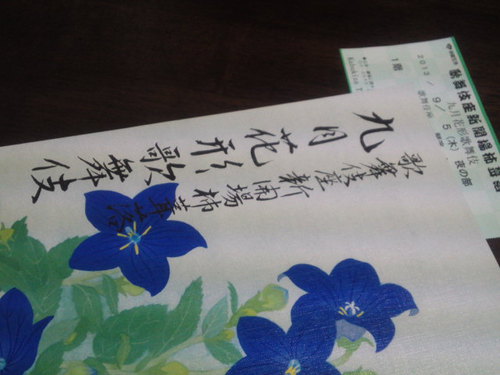 歌舞伎座新開場柿葺落
九月花形歌舞伎
歌舞伎座新開場柿葺落
九月花形歌舞伎
2013/9/5(木) 夜の部
歌舞伎座
1階
Kabukiza T